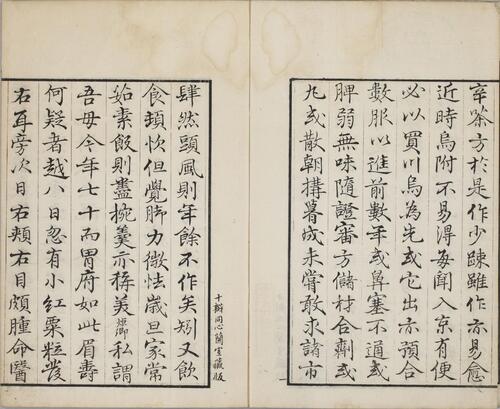 辛䓕方於是作少踈雖亦易愈
近時烏附不易得每聞入京有便
必以買川烏為先或它出亦預合
數服以進前數年或鼻塞不通或
脾弱無味隨證審方儲材合劑或
丸或散朝搆暮成未嘗敢求諸市
十瓣同心蘭室藏版
肆然頭風則年餘不作矣矧又飲
食頓快但覺脚力微怯歲旦家常
茹素飯則盡椀羹亦稱美 私謂
吾母今年七十而胃府如此眉壽
何疑者越八日忽有小紅粟粒發
右耳旁次日右頰右目頗腫命醫